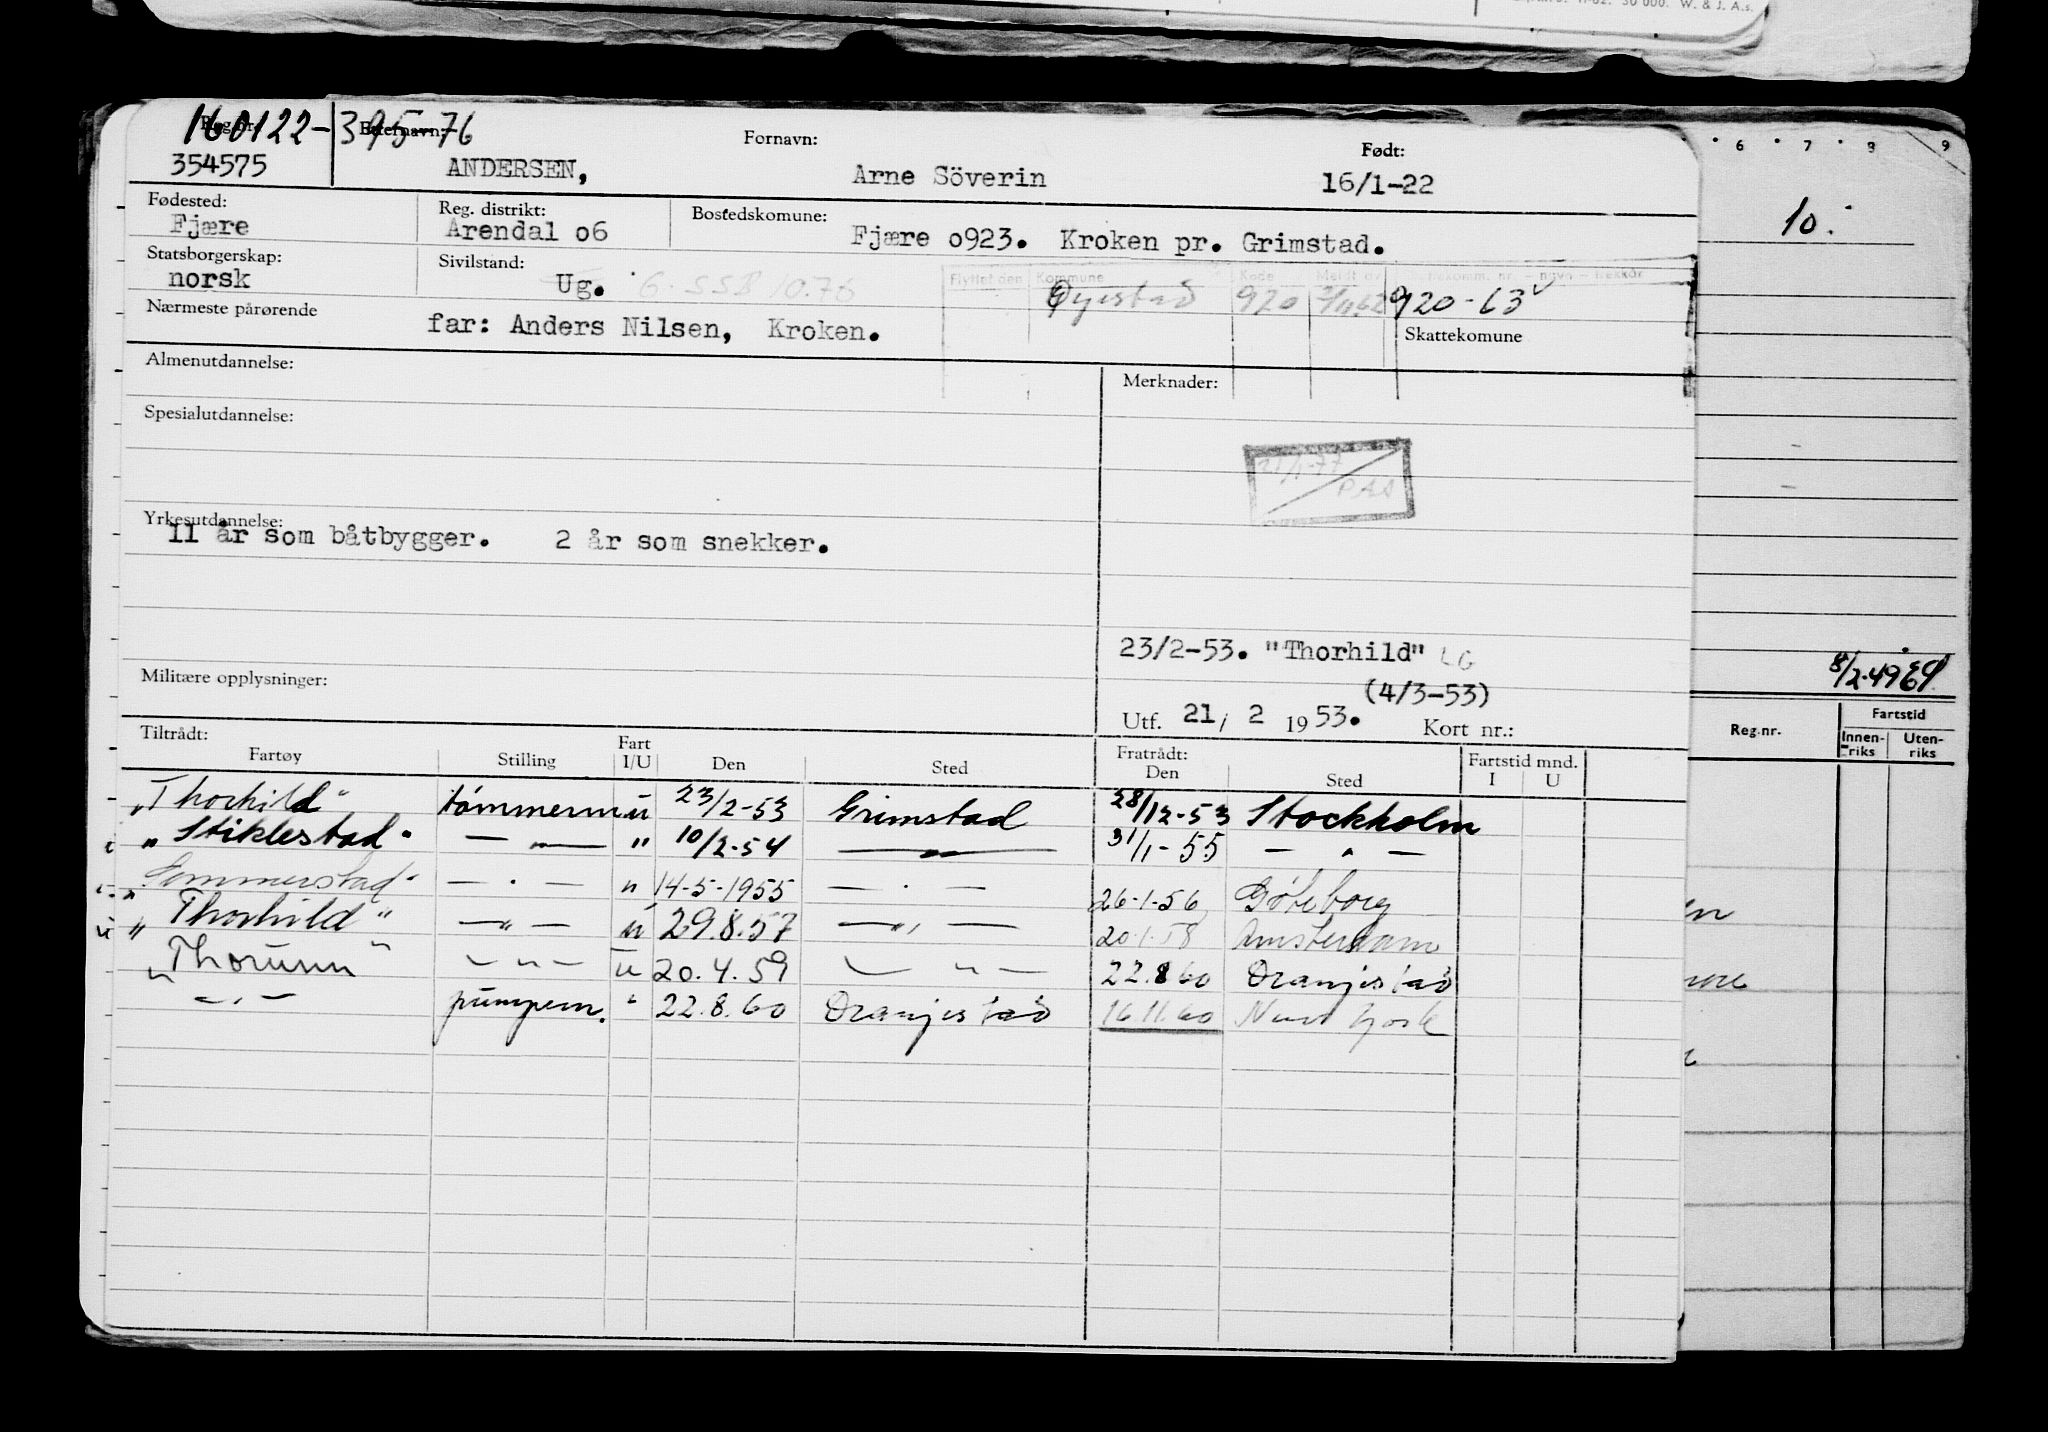 11-62. 30 000. W. & J. A.s.
160122-39576
Reg.nr. Etternavn: Fornavn: Født:
354575 ANDERSEN, Arne Söverin 16/1-22
Fødested: Reg. distrikt: Bostedskomune:
Fjære Arendal o6 Fjære o923. Kroken pr. Grimstad.
Statsborgerskap: Sivilstand:
norsk Ug. 6. SSB 10.76
Flyttet den Kommune Kode Meldt av
Øyestad 920 2/11 62 920-63
Nærmeste pårørende
far: Anders Nilsen, Kroken. Skattekomune
Almenutdannelse: Merknader:
Spesialutdannelse:
21/1-77
PAA
Yrkesutdannelse:
11 år som båtbygger. 2 år som snekker.
23/2-53. "Thorhild" LG
(4/3-53)
Militære opplysninger:
Utf. 21/ 2 1953. Kort nr.:
Tiltrådt: Fratrådt:
Fartøy Stilling Fart I/U Den Sted Den Sted Fartstid mnd. I U
"Thorhild" tømmerm u 23/2-53 Grimstad 28/12-53 Stockholm
"Stiklestad" — " — " 10/2-54 — " — 31/1-55 — " —
" — " — " 14-5-1955 — " — 26-1-56 Göteborg
" Thorhild" — " — u 29.8.57 — " — 20.1.58 Amsterdam
" Thorunn " — " — u 20.4.59 — " — 22.8 60 Oranjestad
— " — pumpem. " 22.8.60 Oranjestad 16.11.60 New York
6 7 8 9
10.
8/2-49
Reg.nr. Fartstid
Innen-riks Uten-riks